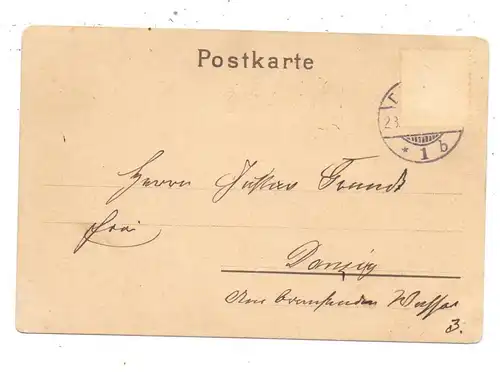 Postkarte
23.
* 1 b
Herrn Gustav
frei
Danzig
Am brausenden Wasser
3.